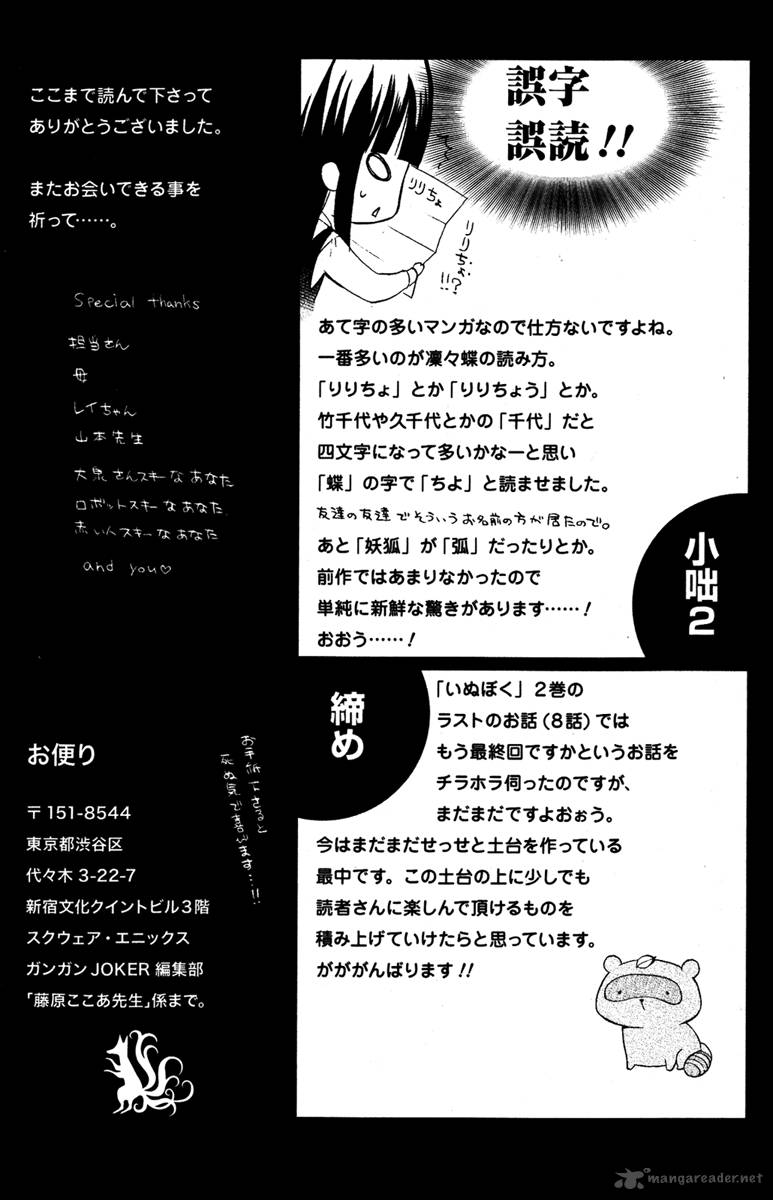 誤字
誤読!!
りりちょ
りりぢょ!!?
あて字の多いマンガなので仕方ないですよね。
一番多いのが凜々蝶の読み方。
「りりちょ」とか「りりちょう」とか。
竹千代や久千代とかの「千代」だと
四文字になって多いかなーと思い
「蝶」の字で「ちよ」と読ませました。
友達の友達でそういうお名前の方が居たので。
あと「妖狐」が「弧」だったりとか。
前作ではあまりなかったので
単純に新鮮な驚きがあります……!
おおう……!
小咄2
締め
「いぬぼく」2巻の
ラストのお話(8話)では
もう最終回ですかというお話を
チラホラ伺ったのですが、
まだまだですよおぉう。
今はまだまだせっせと土台を作っている
最中です。この土台の上に少しでも
読者さんに楽しんで頂けるものを
積み上げていけたらと思っています。
がががんばります!!
ここまで読んで下さって
ありがとうございました。
またお会いできる事を
祈って……。
Special thanks
担当さん
母
レイちゃん
山本先生
大泉さんスキーなあなた
ロボットスキーなあなた
赤い人スキーなあなた
and you♡
お便り
お手紙下さると
死ぬ気で喜びます…!!
〒151-8544
東京都渋谷区
代々木 3-22-7
新宿文化クイントビル3階
スクウェア・エニックス
ガンガン JOKER 編集部
「藤原ここあ先生」係まで。
mangareader.net